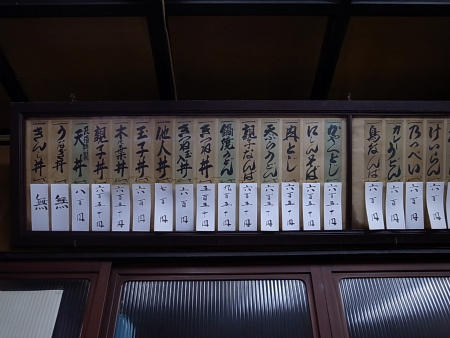 けいらん
六百円
のっぺい
六百円
カレーうどん
六百円
鳥なんば
六百円
にしんそば
六百五十円
肉とじ
六百五十円
天ぷらうどん
親子なんば
六百五十円
鍋焼うどん
九百五十円
きつね丼
五百五十円
六百円
他人丼
七百円
玉子丼
六百円
木の葉丼
六百五十円
親子丼
六百五十円
天丼
八百円
うなぎ丼
無
きんし丼
無